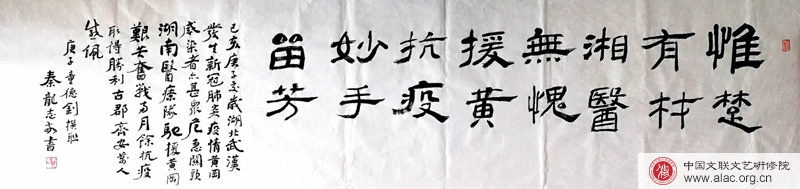 惟楚
有材
湘醫
無愧
援黄
抗疫
妙手
留芳
己亥庚子交歲湖北武漢
發生新冠肺炎疫情黄岡
感染者亦甚眾危急關頭
湖南醫療隊馳援黄岡
艱苦奮戰两月餘抗疫
取得勝利古郡齊安萬人
感佩
庚子童德劉撰聯
秦龍志安書
中国文联文艺研修院
www.alac.org.cn